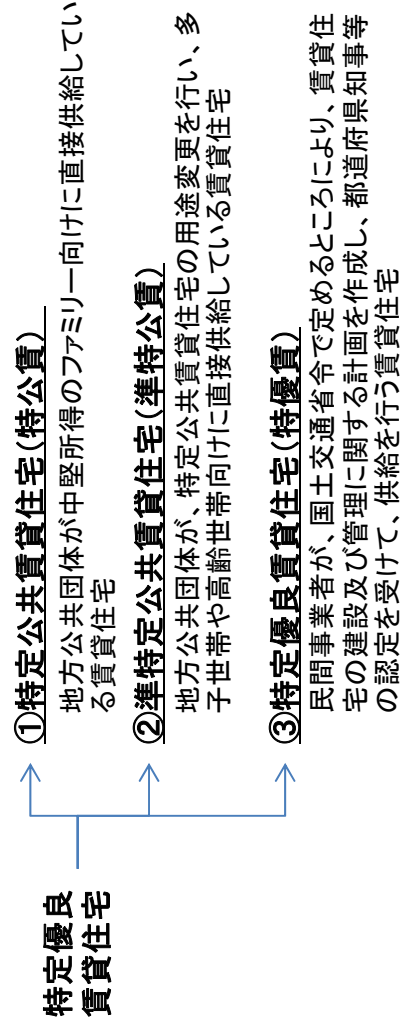 特定優良
賃貸住宅
①特定公共賃貸住宅(特公賃)
地方公共団体が中堅所得のファミリー向けに直接供給してい
る賃貸住宅
②準特定公共賃貸住宅(準特公賃)
地方公共団体が、特定公共賃貸住宅の用途変更を行い、多
子世帯や高齢世帯向けに直接供給している賃貸住宅
③特定優良賃貸住宅(特優賃)
民間事業者が、国土交通省令で定めるところにより、賃貸住
宅の建設及び管理に関する計画を作成し、都道府県知事等
の認定を受けて、供給を行う賃貸住宅